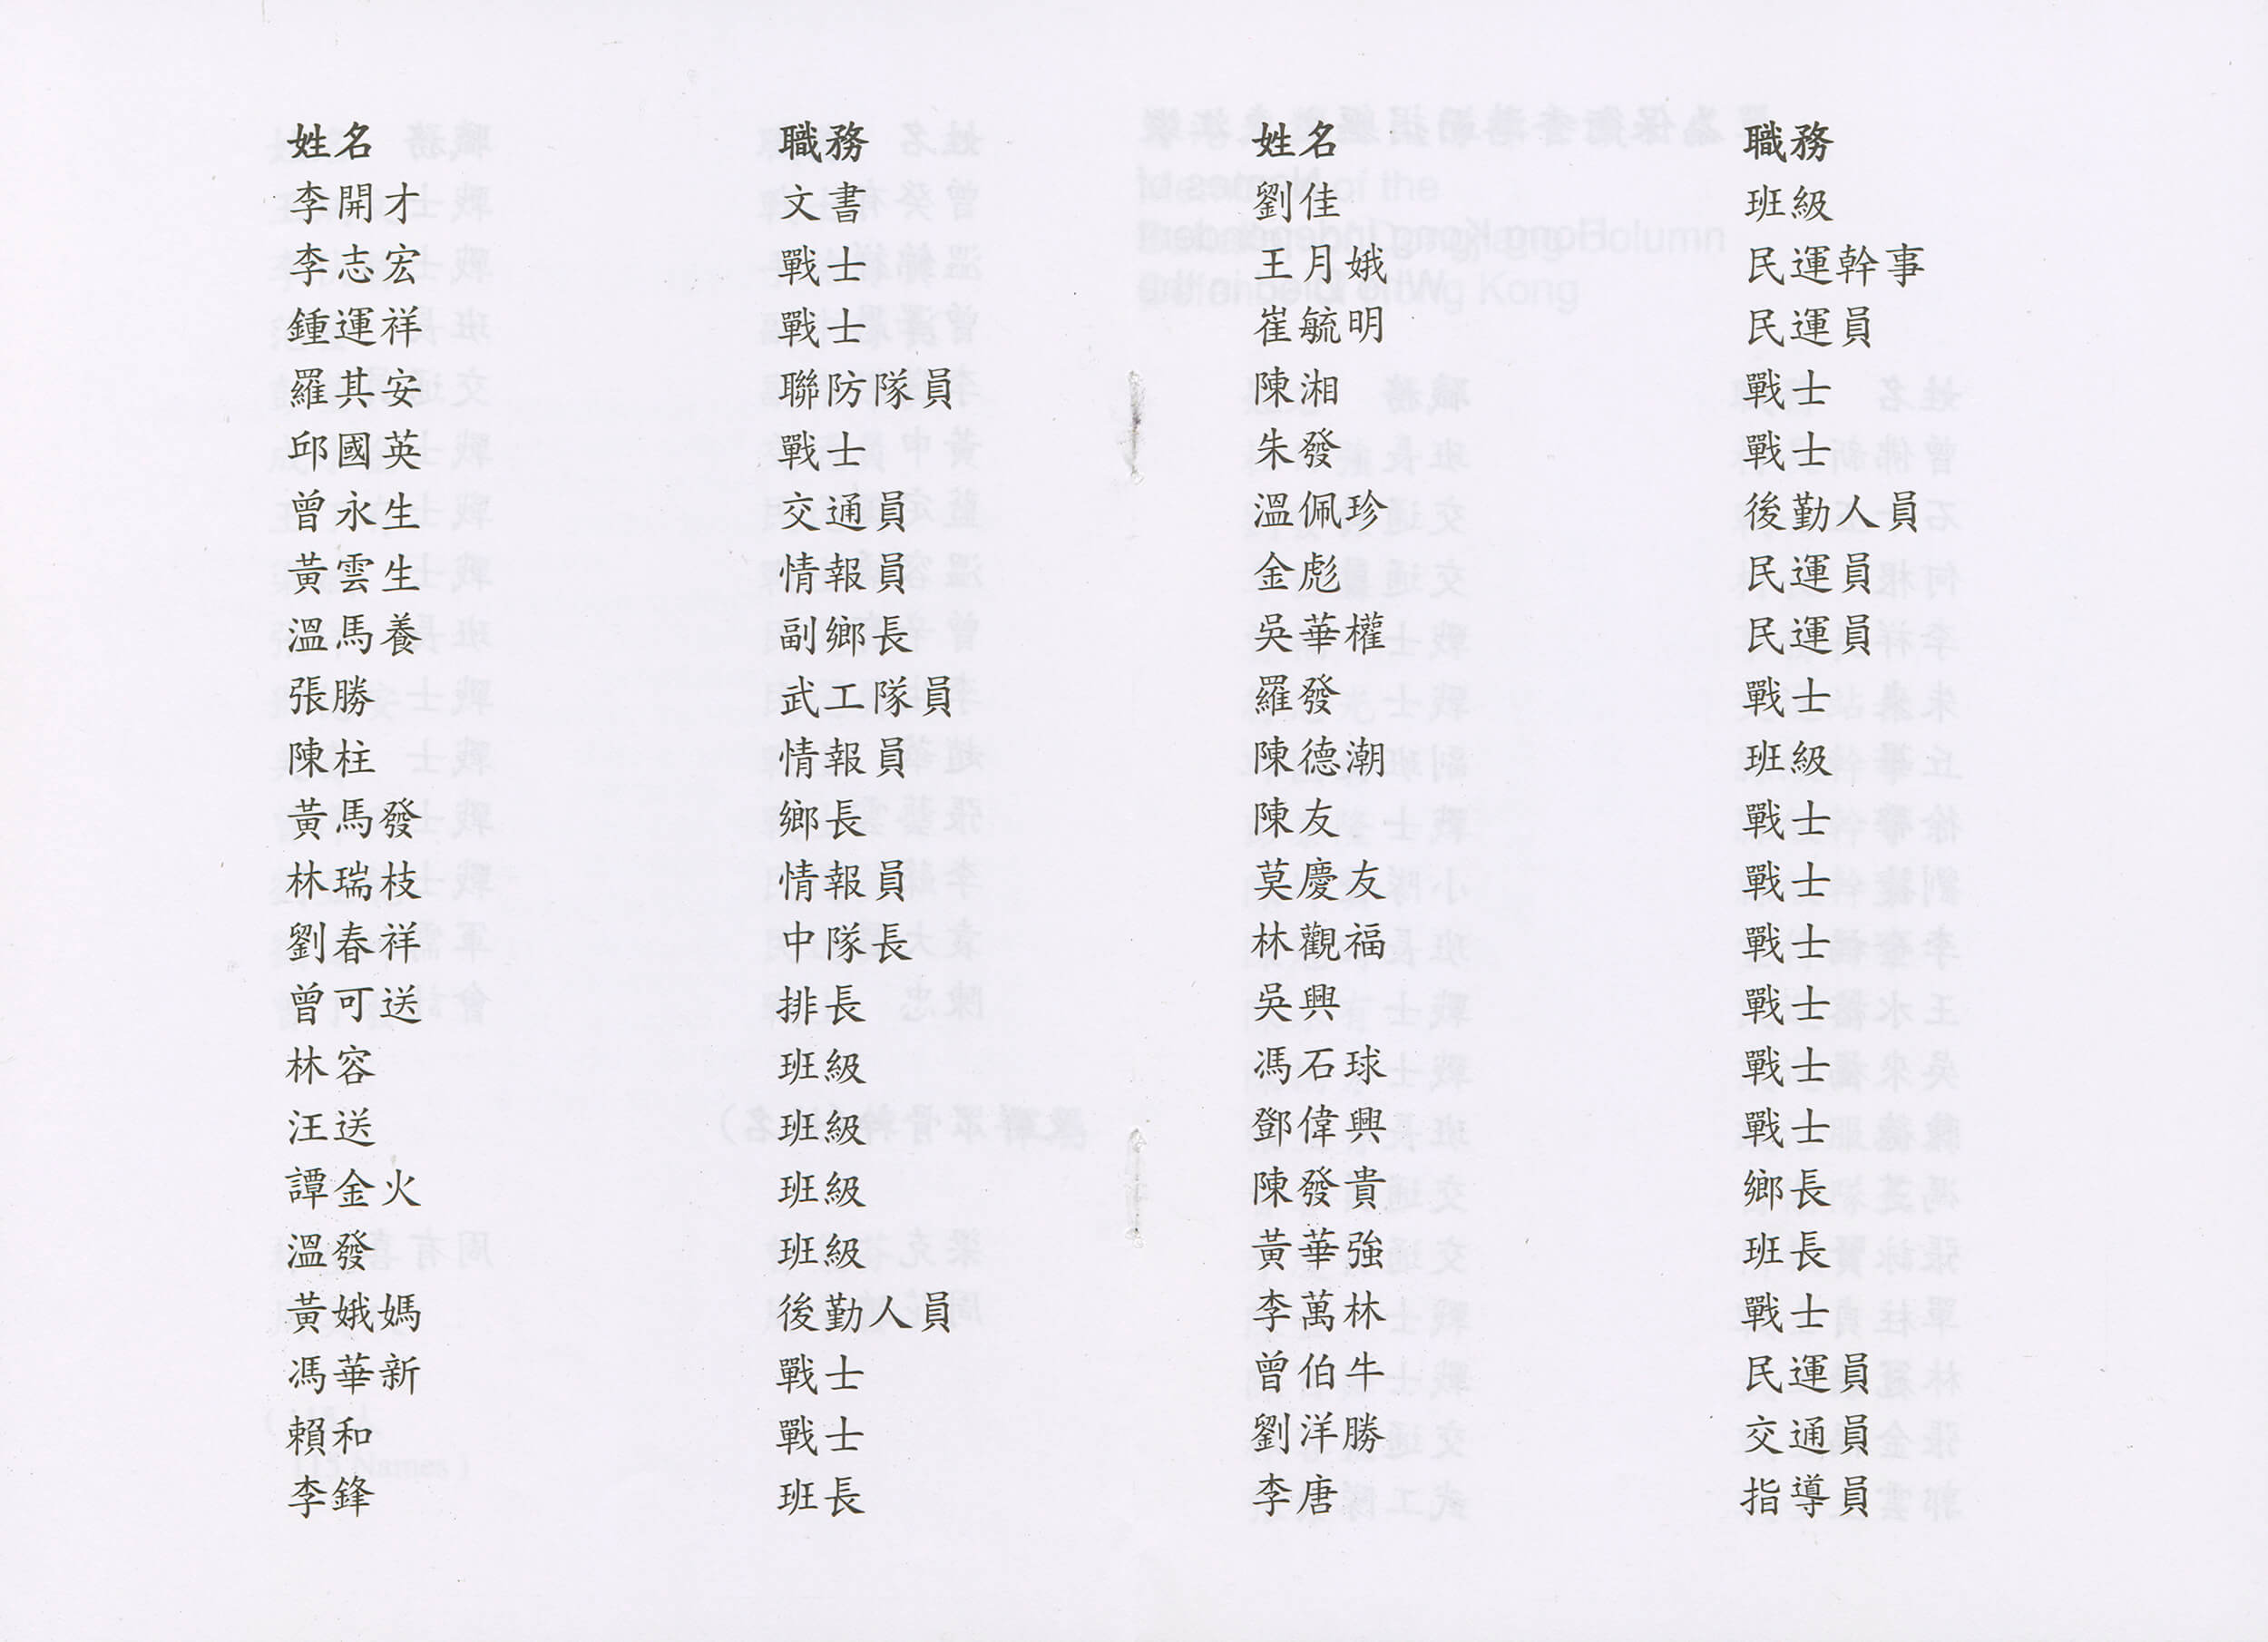 姓名 職務
李開才 文書
李志宏 戰士
鍾運祥 戰士
羅其安 聯防隊員
邱國英 戰士
曾永生 交通員
黃雲生 情報員
溫馬養 副鄉長
張勝 武工隊員
陳柱 情報員
黃馬發 鄉長
林瑞枝 情報員
劉春祥 中隊長
曾可送 排長
林容 班級
汪送 班級
譚金火 班級
溫發 班級
黃娥媽 後勤人員
馮華新 戰士
賴和 戰士
李鋒 班長
姓名 職務
劉佳 班級
王月娥 民運幹事
崔毓明 民運員
陳湘 戰士
朱發 戰士
溫佩珍 後勤人員
金彪 民運員
吳華權 民運員
羅發 戰士
陳德潮 班級
陳友 戰士
莫慶友 戰士
林觀福 戰士
吳興 戰士
馮石球 戰士
鄧偉興 戰士
陳發貴 鄉長
黃華強 班長
李萬林 戰士
曾伯牛 民運員
劉洋勝 交通員
李唐 指導員